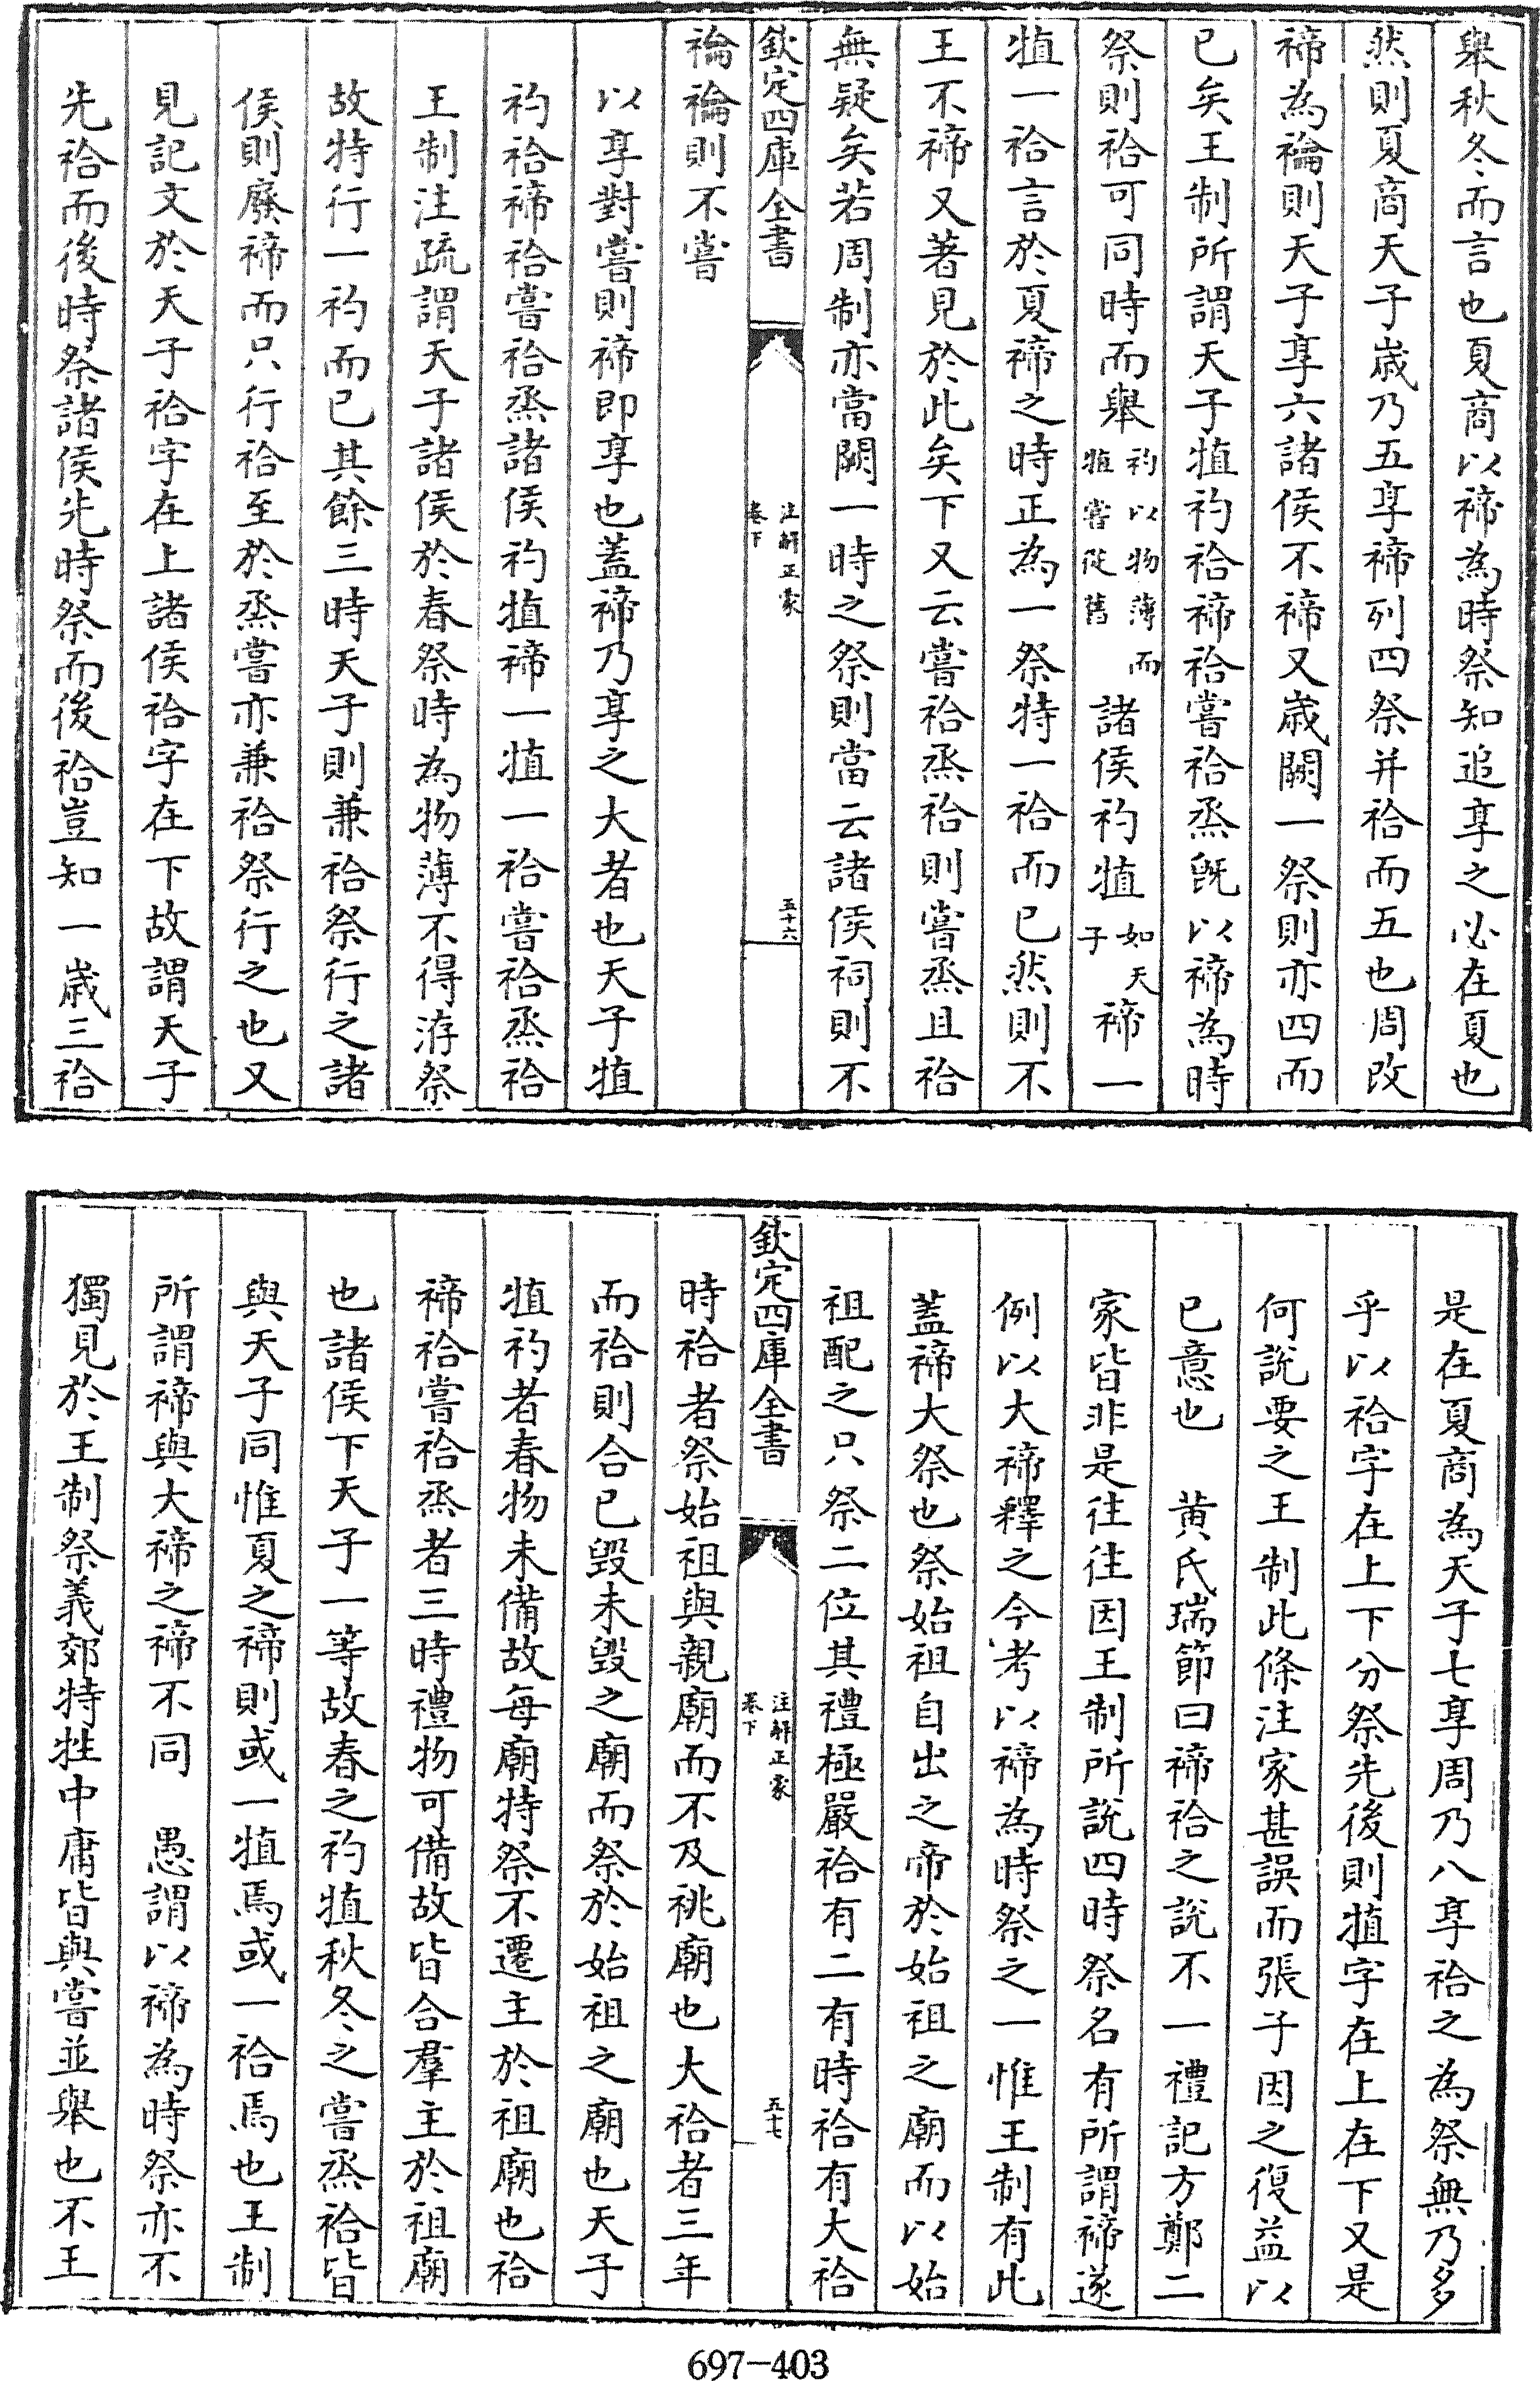 舉秋冬而言也夏商以禘為時祭知追享之必在夏也
然則夏商天子歲乃五享禘列四祭并祫而五也周改
禘為禴則天子享六諸侯不禘又歲闕一祭則亦四而
已矣王制所謂天子犆礿祫禘祫嘗祫烝旣以禘為時
祭則祫可同時而舉礿以物薄而犆嘗從舊諸侯礿犆如天子禘一
犆一祫言於夏禘之時正為一祭特一祫而已然則不
王不禘又著見於此矣下又云嘗祫烝祫則嘗烝且祫
無疑矣若周制亦當闕一時之祭則當云諸侯祠則不
欽定四庫全書
注解正蒙
卷下
五十六
禴禴則不嘗
以享對嘗則禘即享也蓋禘乃享之大者也天子犆
礿祫禘祫嘗祫烝諸侯礿犆禘一犆一祫嘗祫烝祫
王制注疏謂天子諸侯於春祭時為物薄不得洊祭
故特行一礿而已其餘三時天子則兼祫祭行之諸
侯則廢禘而只行祫至於烝嘗亦兼祫祭行之也又
見記文於天子祫字在上諸侯祫字在下故謂天子
先祫而後時祭諸侯先時祭而後祫豈知一歲三祫
是在夏商為天子七享周乃八享祫之為祭無乃多
乎以祫字在上下分祭先後則犆字在上在下又是
何說要之王制此條注家甚誤而張子因之復益以
已意也　黄氏瑞節曰禘祫之說不一禮記方鄭二
家皆非是往往因王制所說四時祭名有所謂禘遂
例以大禘釋之今考以禘為時祭之一惟王制有此
蓋禘大祭也祭始祖自出之帝於始祖之廟而以始
祖配之只祭二位其禮極嚴祫有二有時祫有大祫
欽定四庫全書
注解正蒙
卷下
五十七
時祫者祭始祖與親廟而不及祧廟也大祫者三年
而祫則合已毀未毀之廟而祭於始祖之廟也天子
犆礿者春物未備故每廟特祭不遷主於祖廟也祫
禘祫嘗祫烝者三時禮物可備故皆合羣主於祖廟
也諸侯下天子一等故春之礿犆秋冬之嘗烝祫皆
與天子同惟夏之禘則或一犆焉或一祫焉也王制
所謂禘與大禘之禘不同　愚謂以禘為時祭亦不
獨見於王制祭義郊特牲中庸皆與嘗並舉也不王
697-403